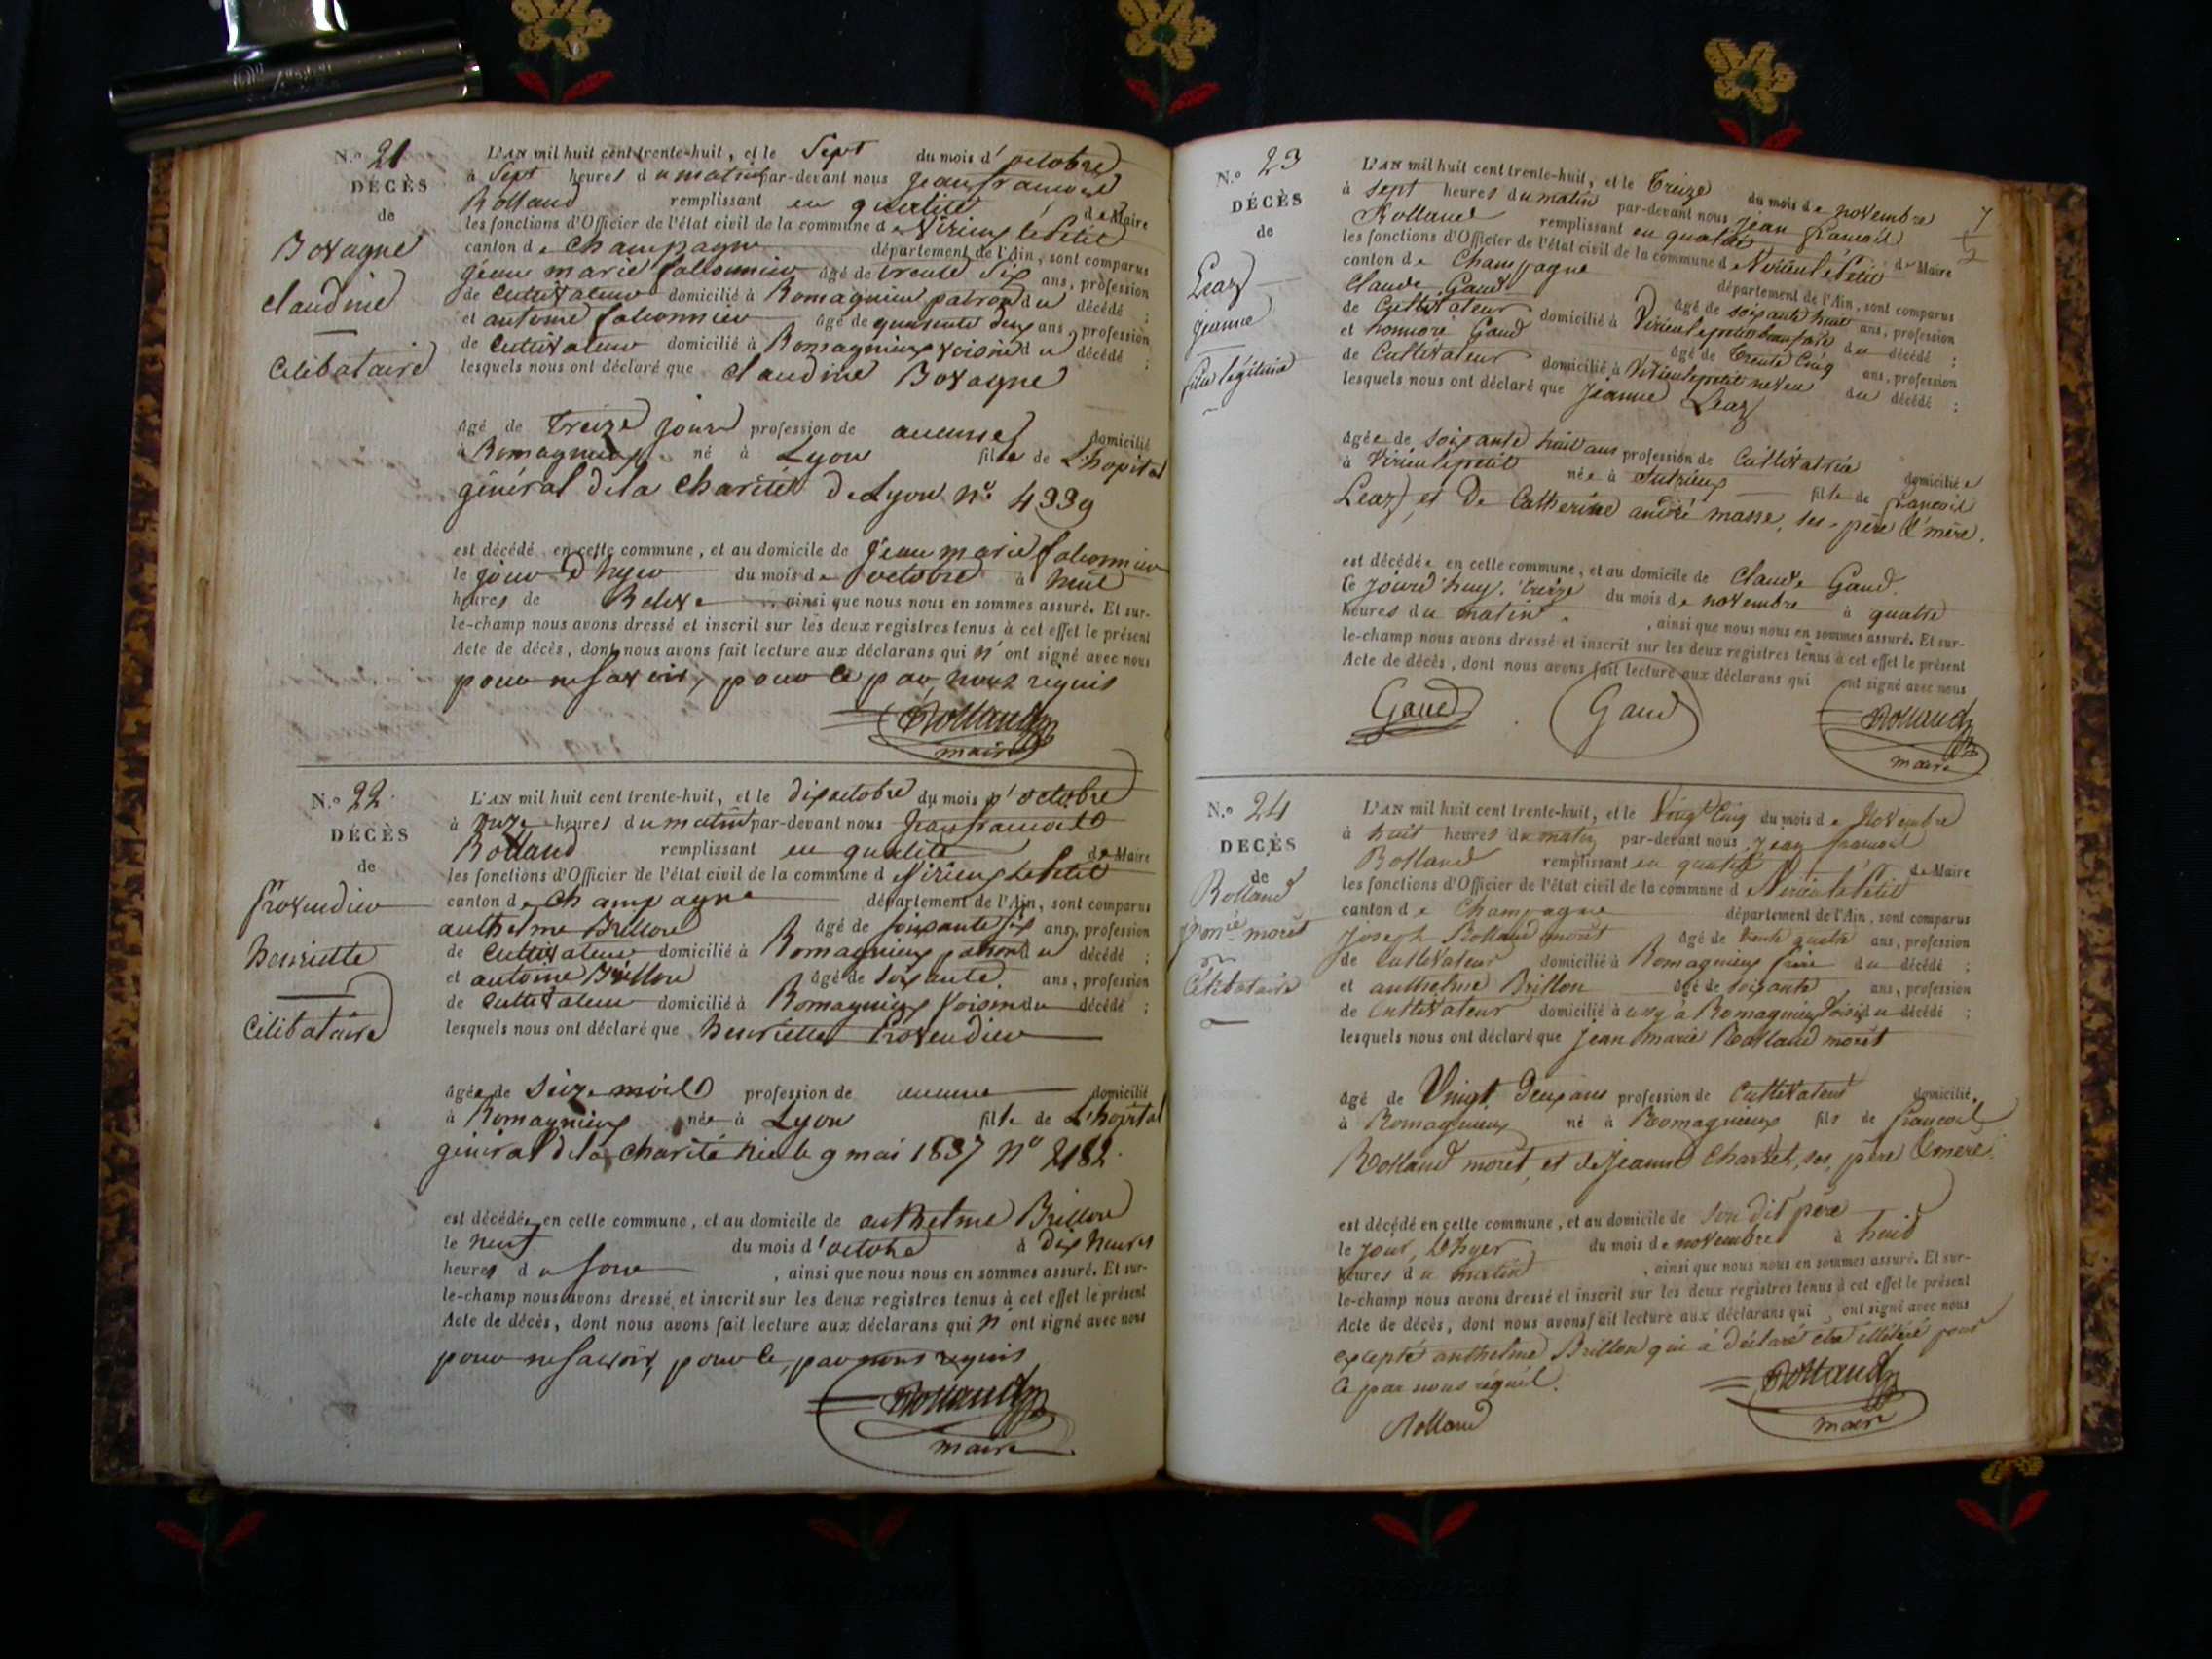 N.o 21
DÉCÈS
de
Bovagne
Claudine
Célibataire
L'AN mil huit cent trente-huit, et le Sept du mois d'octobre
à Sept heures du matin par-devant nous Jean francois
Rolland remplissant en qualité de Maire
les fonctions d'Officier de l'état civil de la commune de Virieux le Petit
canton de Champagne département de l'Ain, sont comparus
jean marie falconnier âgé de trente six ans, profession
de Cultivateur domicilié à Romagnieu patron du décédé ;
et antoine falconnier âgé de quarante deux ans, profession
de Cultivateur domicilié à Romagnieux voisin du décédé ;
lesquels nous ont déclaré que Claudine Bovagne
âgé de treize jours profession de aucune domicilié
à Romagnieux né à Lyon fille de L'hopital
général dela Charité de Lyon No. 4339
est décédé en cette commune, et au domicile de jean marie falconnier
le jour d'hyer du mois de octobre à huit
heures de ainsi que nous nous en sommes assuré. Et sur-
le-champ nous avons dressé et inscrit sur les deux registres tenus à cet effet le présent
Acte de décès, dont nous avons fait lecture aux déclarans qui n'ont signé avec nous
pour ne savoir, pour ce par nous requis
Rolland
maire
N.o 22
DÉCÈS
de
Provendier
henriette
Célibataire
L'AN mil huit cent trente-huit, et le dix octobre du mois d'octobre
à onze heures du matin par-devant nous Jean francois
Rolland remplissant en qualité de Maire
les fonctions d'Officier de l'état civil de la commune d Virieux le Petit
canton de Champagne département de l'Ain, sont comparus
anthelme Brillon âgé de soixante six ans, profession
de Cultivateur domicilié à Romagnieux patron du décédé ;
et antoine Brillon âgé de soixante ans, profession
de Cultivateur domicilié à Romagnieux voisin du décédé ;
lesquels nous ont déclaré que henriette Provendier
âgée de Seize mois profession de aucune domicilié
à Romagnieux née à Lyon fille de L'hopital
général dela charité née le 9 mai 1837 No 2182
est décédée en cette commune, et au domicile de anthelme Brillon
le neuf du mois d'octobre à dix heures
heures du soir , ainsi que nous nous en sommes assuré. Et sur-
le-champ nous avons dressé et inscrit sur les deux registres tenus à cet effet le présent
Acte de décès, dont nous avons fait lecture aux déclarans qui n'ont signé avec nous
pour ne savoir, pour ce, par nous requis
Rolland
maire
N.o 23
DÉCÈS
de
Leaz
jeanne
fille légitime
L'AN mil huit cent trente-huit, et le treize du mois de novembre
à sept heures du matin par-devant nous Jean francois
Rolland remplissant en qualité de Maire
les fonctions d'Officier de l'état civil de la commune de Virieu le Petit
canton de Champagne département de l'Ain, sont comparus
Claude Gaud âgé de soixante huit ans, profession
de Cultivateur domicilié à Virieu le petit beau frère du décédé ;
et honnoré Gaud âgé de trente Cinq ans, profession
de Cultivateur domicilié à Virieu le petit neveu du décédé ;
lesquels nous ont déclaré que Jeanne Leaz
âgée de soixante huit ans profession de Cultivatrice domiciliée
à Virieu le petit née à Sutrieux fille de francois
Leaz, et De Catherine andré masse, ses père & mère.
est décédée en cette commune, et au domicile de Claude Gaud.
le jourd'huy. treize du mois de novembre à quatre
heures du matin . , ainsi que nous nous en sommes assuré. Et sur-
le-champ nous avons dressé et inscrit sur les deux registres tenus à cet effet le présent
Acte de décès, dont nous avons fait lecture aux déclarans qui ont signé avec nous
Gaud Gaud Rolland
maire
N.o 24
DECÈS
de
Rolland
moret
Célibataire
L'AN mil huit cent trente-huit, et le Vingt Cinq du mois de Novembre
à huit heures du matin par-devant nous Jean francois
Rolland remplissant en qualité de Maire
les fonctions d'Officier de l'état civil de la commune d Virieu le Petit
canton de Champagne département de l'Ain, sont comparus
Joseph Rolland moret âgé de trente quatre ans, profession
de Cultivateur domicilié à Romagnieux frère du décédé ;
et anthelme Brillon âgé de soixante ans, profession
de Cultivateur domicilié à Romagnieux voisin du décédé ;
lesquels nous ont déclaré que Jean marie Rolland moret
âgé de Vingt Deux ans profession de Cultivateur domicilié
à Romagnieux né à Romagnieux fils de francois
Rolland moret, et de Jeanne Charvet, ses, père & mère.
est décédé en cette commune, et au domicile de son dit père
le jour, d'hyer du mois de novembre à huit
heures du matin , ainsi que nous nous en sommes assuré. Et sur-
le-champ nous avons dressé et inscrit sur les deux registres tenus à cet effet le présent
Acte de décès, dont nous avons fait lecture aux déclarans qui ont signé avec nous
excepté anthelme Brillon qui a déclaré être illétéré pour
ce par nous réquis.
Rolland
Rolland
maire